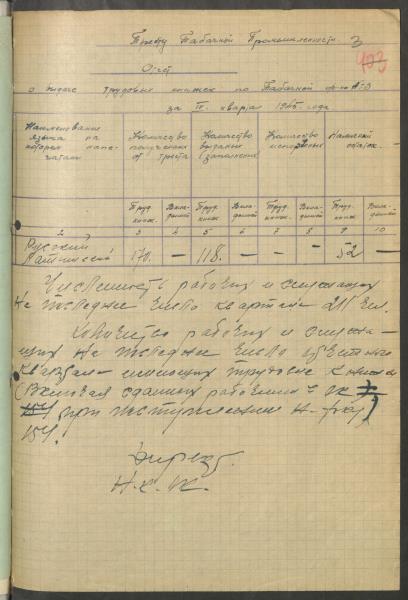 Тресту Табачной Промышленности. 3
103
Отчет
о выдаче трудовых книжек по Табачной
за IV. квартал 1945. года
Наименование языка на котором напечатаны
Количество полученных от треста
Количество выданых (заполненных)
Количество испорченных
Наличный остаток.
Труд. книж. Вкладышей Труд. книж. Вкладышей Труд. книж. Вкладышей Труд. книж. Вкладышей
2 3 4 5 6 7 8 9 10
Русский
Латышский 170. — 118. — — — 52 —
Численность рабочих и служащих
на последнее число квартала 211 чел.
Количество рабочих и служа-
щих на последнее число отчетного
квартала имеющих трудовые книжки
(Включая сданных рабочими
при поступлении
154.
Директ.
Н.С.К.